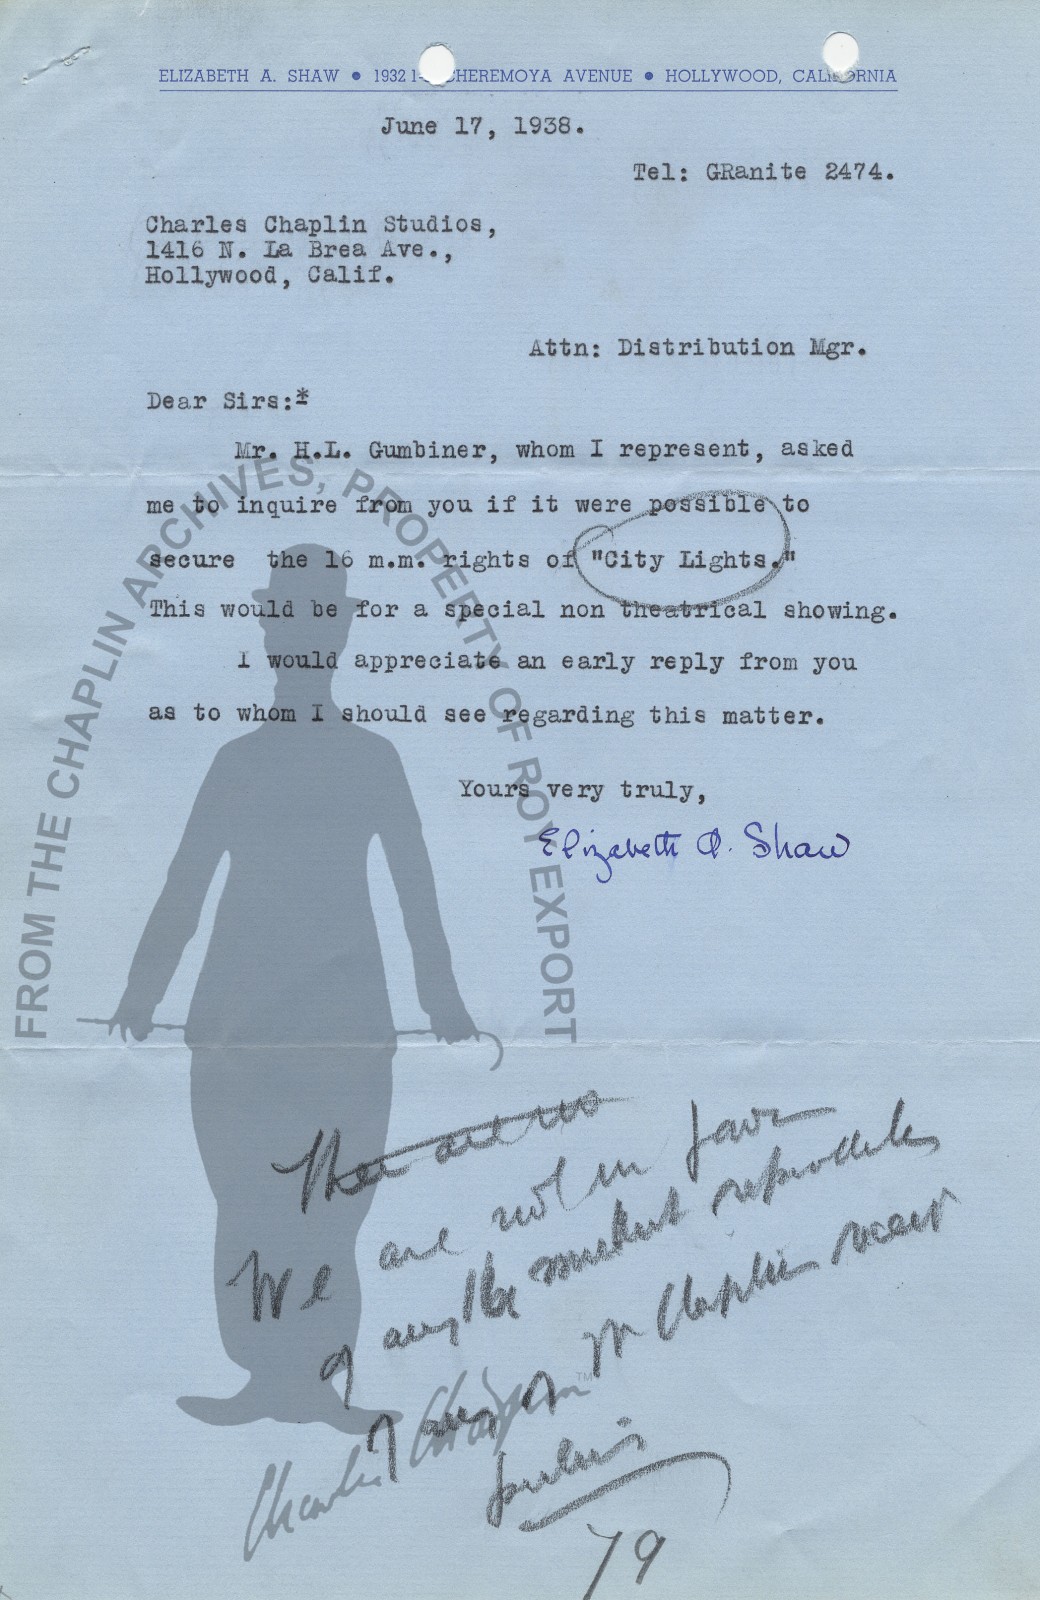 ELIZABETH A. SHAW • 1932 1- CHEREMOYA AVENUE • HOLLYWOOD, CALIFORNIA
June 17, 1938.
Tel: GRanite 2474.
Charles Chaplin Studios,
1416 N. La Brea Ave.,
Hollywood, Calif.
Attn: Distribution Mgr.
Dear Sirs:*
Mr. H.L. Gumbiner, whom I represent, asked
me to inquire from you if it were possible to
secure the 16 m.m. rights of "City Lights."
This would be for a special non theatrical showing.
I would appreciate an early reply from you
as to whom I should see regarding this matter.
Yours very truly,
Elizabeth A. Shaw
FROM THE CHAPLIN ARCHIVES, PROPERTY OF ROY EXPORT
We are not in favor
of any
of any of Mr Chaplin
Charlie Chaplin™